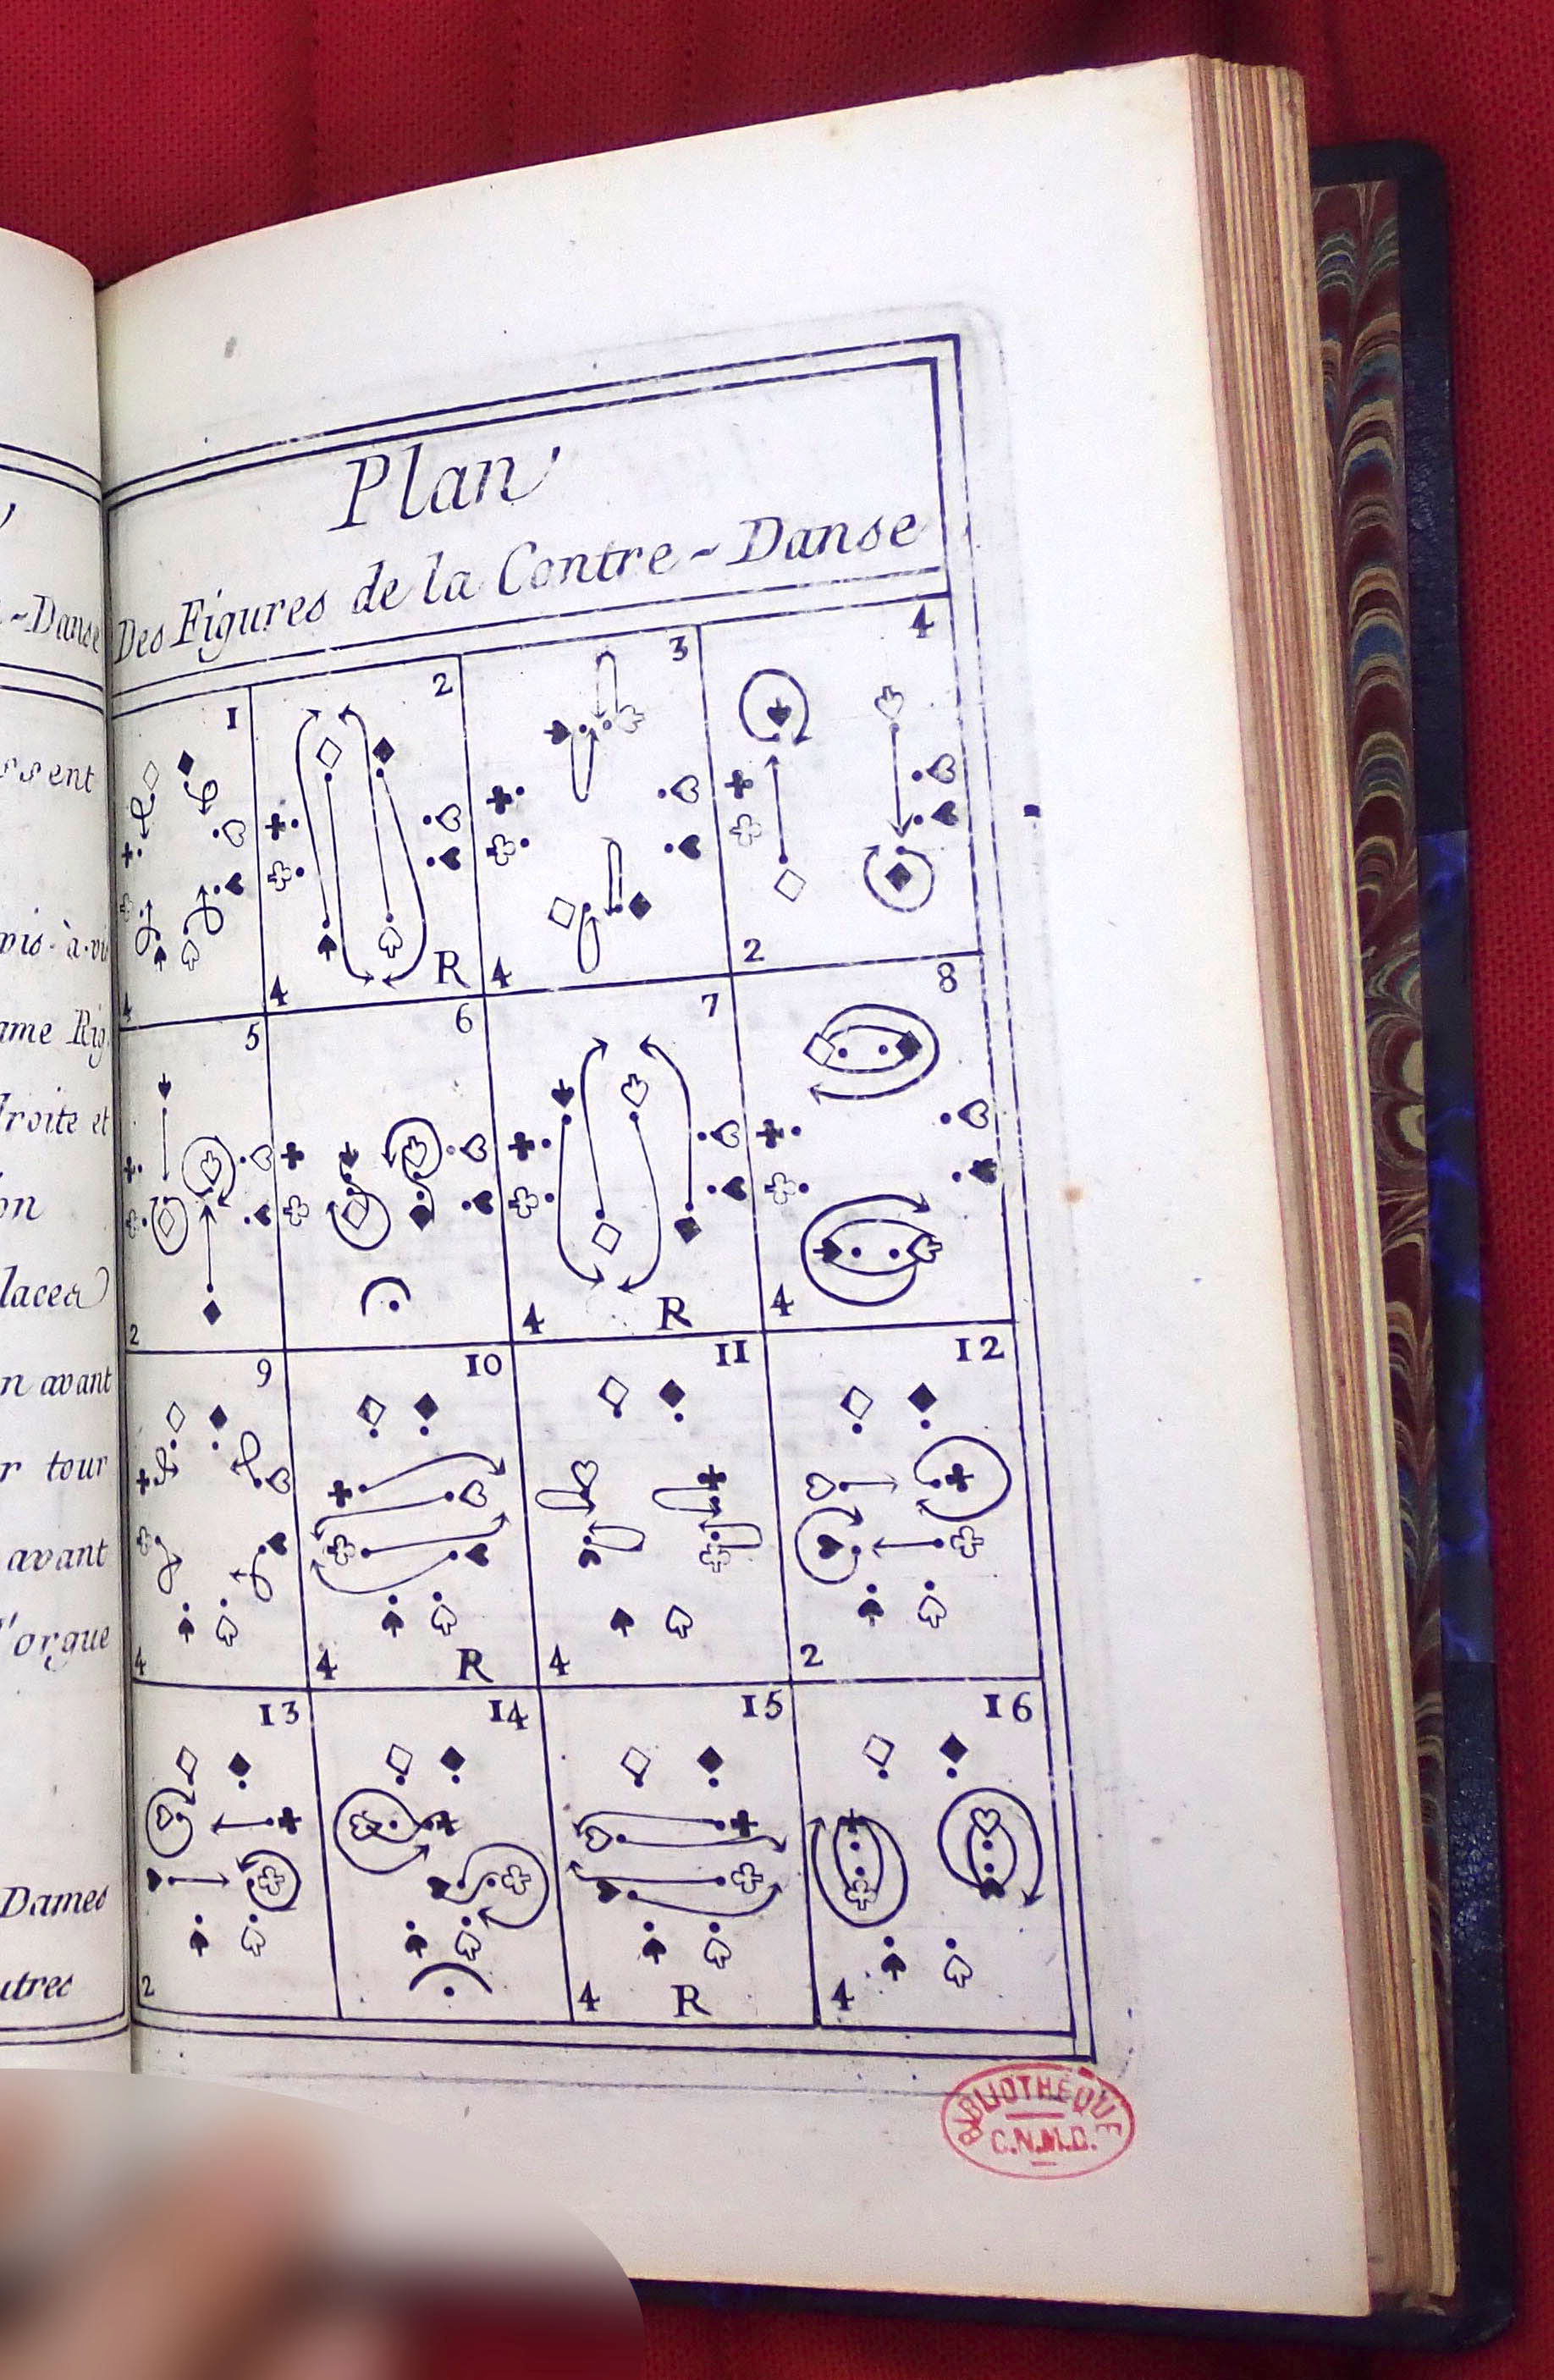 -Danse
ssent
vis-à-vi
ame Rig
droite et
on
lacer
n avant
r tour
avant
l'orgue
Dames
utres
Plan
Des Figures de la Contre-Danse
1 2 3 4
4 4 R 4 2
5 6 7 8
2 4 R 4
9 10 11 12
4 4 R 4 2
13 14 15 16
2 4 R 4
BIBLIOTHÈQUE
C.N.M.D.